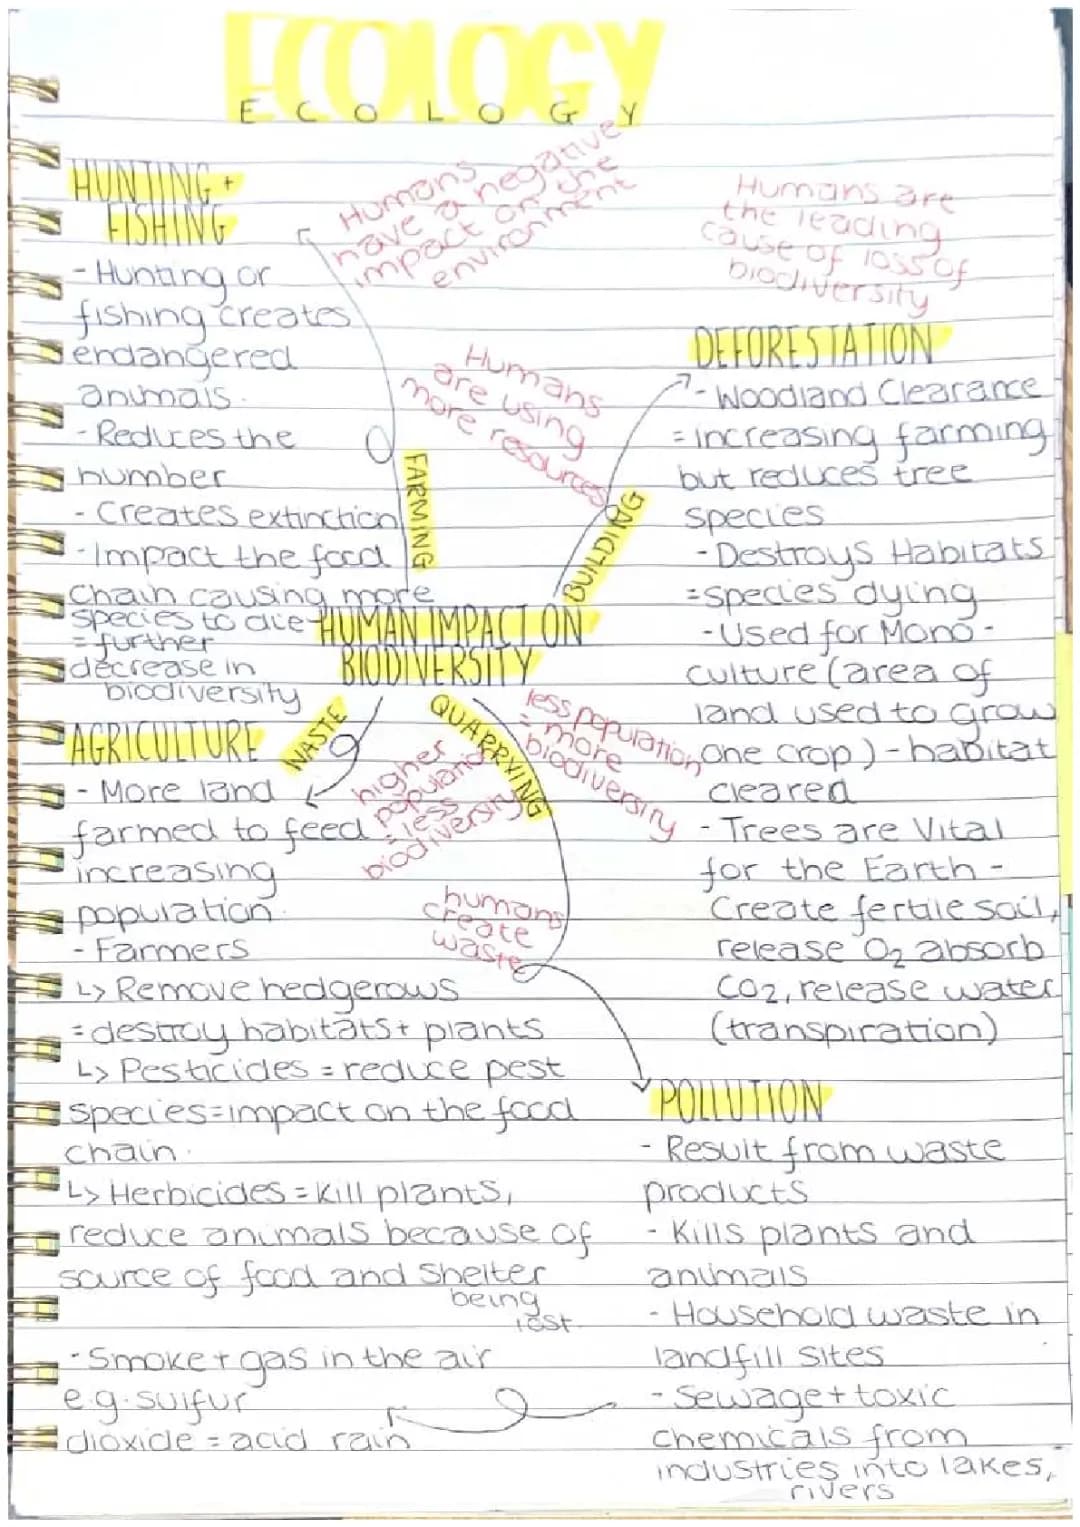 ECOLOGY
ECOLOGY
HUNTING +
FISHING
- Hunting or
fishing creates
endangered
animals.
- Reduces the
number
- Creates extinction
- Impact the food
chain causing more
species to die
= further
decrease in
biodiversity
Humans
have a negative
impact on the
environment
Humans are
the leading
cause of loss of
biodiversity
Humans
are using
more resources
FARMING
BUILDING
HUMAN IMPACT ON
BIODIVERSITY
WASTE
QUARRYING
less population
= more
biodiversity
higher
population
= less
biodiversity
humans
create
waste
DEFORESTATION
- Woodland Clearance
= increasing farming
but reduces tree
species
- Destroys Habitats
= species dying
- Used for Mono -
culture (area of
land used to grow
one crop) - habitat
cleared
- Trees are Vital
for the Earth -
Create fertile soil,
release O₂ absorb
CO₂, release water
(transpiration)
AGRICULTURE
- More land
farmed to feed
increasing
population.
- Farmers
↳ Remove hedgerows
= destroy habitats + plants
↳ Pesticides = reduce pest
species = impact on the food
chain.
↳ Herbicides = Kill plants,
reduce animals because of
source of food and shelter
being
lost.
POLLUTION
- Result from waste
products
- Kills plants and
animals
- Household waste in
landfill sites
- Sewage + toxic
chemicals from
industries into lakes,
rivers
- Smoke + gas in the air
e.g. sulfur
dioxide = acid rain